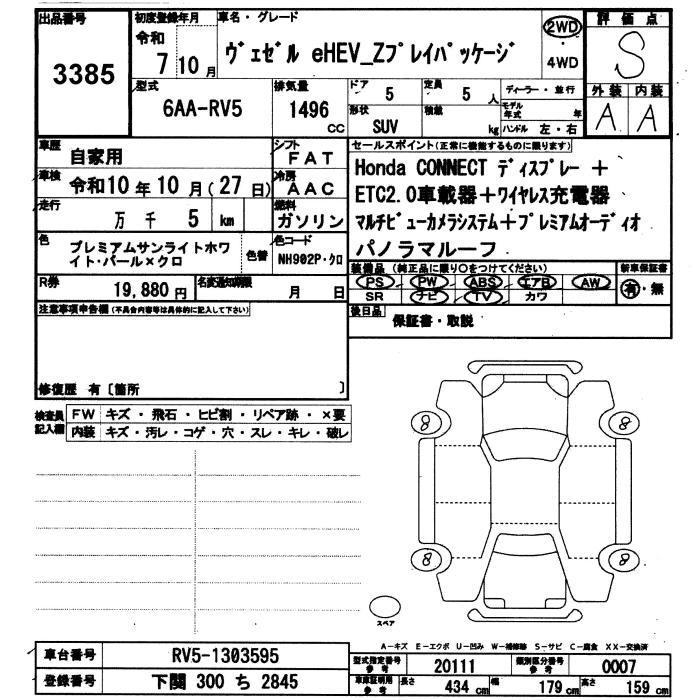 出品番号
3385
初度登録年月
令和
7 10 月
車名・グレード
ヴェゼル eHEV_Zプレイパッケージ
2WD
・
4WD
評価点
S
外装 内装
A A
型式
6AA-RV5
排気量
1496
CC
ドア
5
定員
5 人
形状
SUV
積載
kg
ディーラー・並行
モデル年式 年
ハンドル 左・右
車歴
自家用
シフト
FAT
車検
令和10 年 10 月(27 日)
冷房
AAC
走行
万 千 5 km
燃料
ガソリン
色
プレミアムサンライトホワ
イト・パール×クロ
色替
色コード
NH902P・クロ
R券
19,880 円
名変通知期限
月 日
注意事項申告欄(不具合内容等は具体的に記入して下さい)
修復歴 有〔箇所 〕
セールスポイント(正常に機能するものに限ります)
Honda CONNECT ディスプレー +
ETC2.0車載器+ワイヤレス充電器
マルチビューカメラシステム+プレミアムオーディオ
パノラマルーフ
装備品(純正品に限り○をつけてください)
PS PW ABS エアB AW
SR ナビ TV カワ
新車保証書
有・無
後日品
保証書・取説
検査員
記入欄
FW キズ・飛石・ヒビ割・リペア跡・×要
内装 キズ・汚レ・コゲ・穴・スレ・キレ・破レ
8 8
8 8
スペア
A-キズ E-エクボ U-凹み W-補修跡 S-サビ C-腐食 XX-交換済
車台番号
RV5-1303595
登録番号
下関 300 ち 2845
型式指定番号
参考
20111
類別区分番号
参考
0007
車庫証明用
参考
長さ
434 cm
幅
179 cm
高さ
159 cm